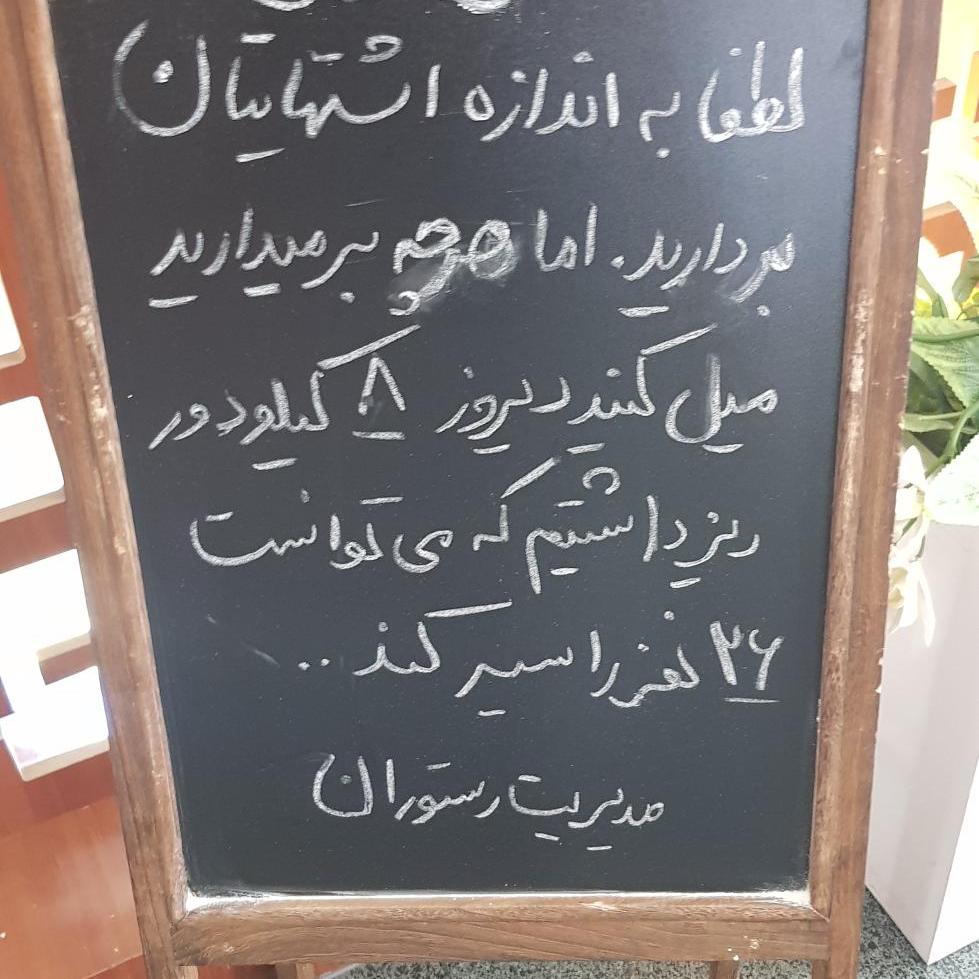 لطفا به اندازه اشتهایتان
بردارید. اما هرچه برمیدارید
میل کنید دیروز ۸ کیلو دور
ریز داشتیم که می توانست
۲۶ نفر را سیر کند ..
مدیریت رستوران